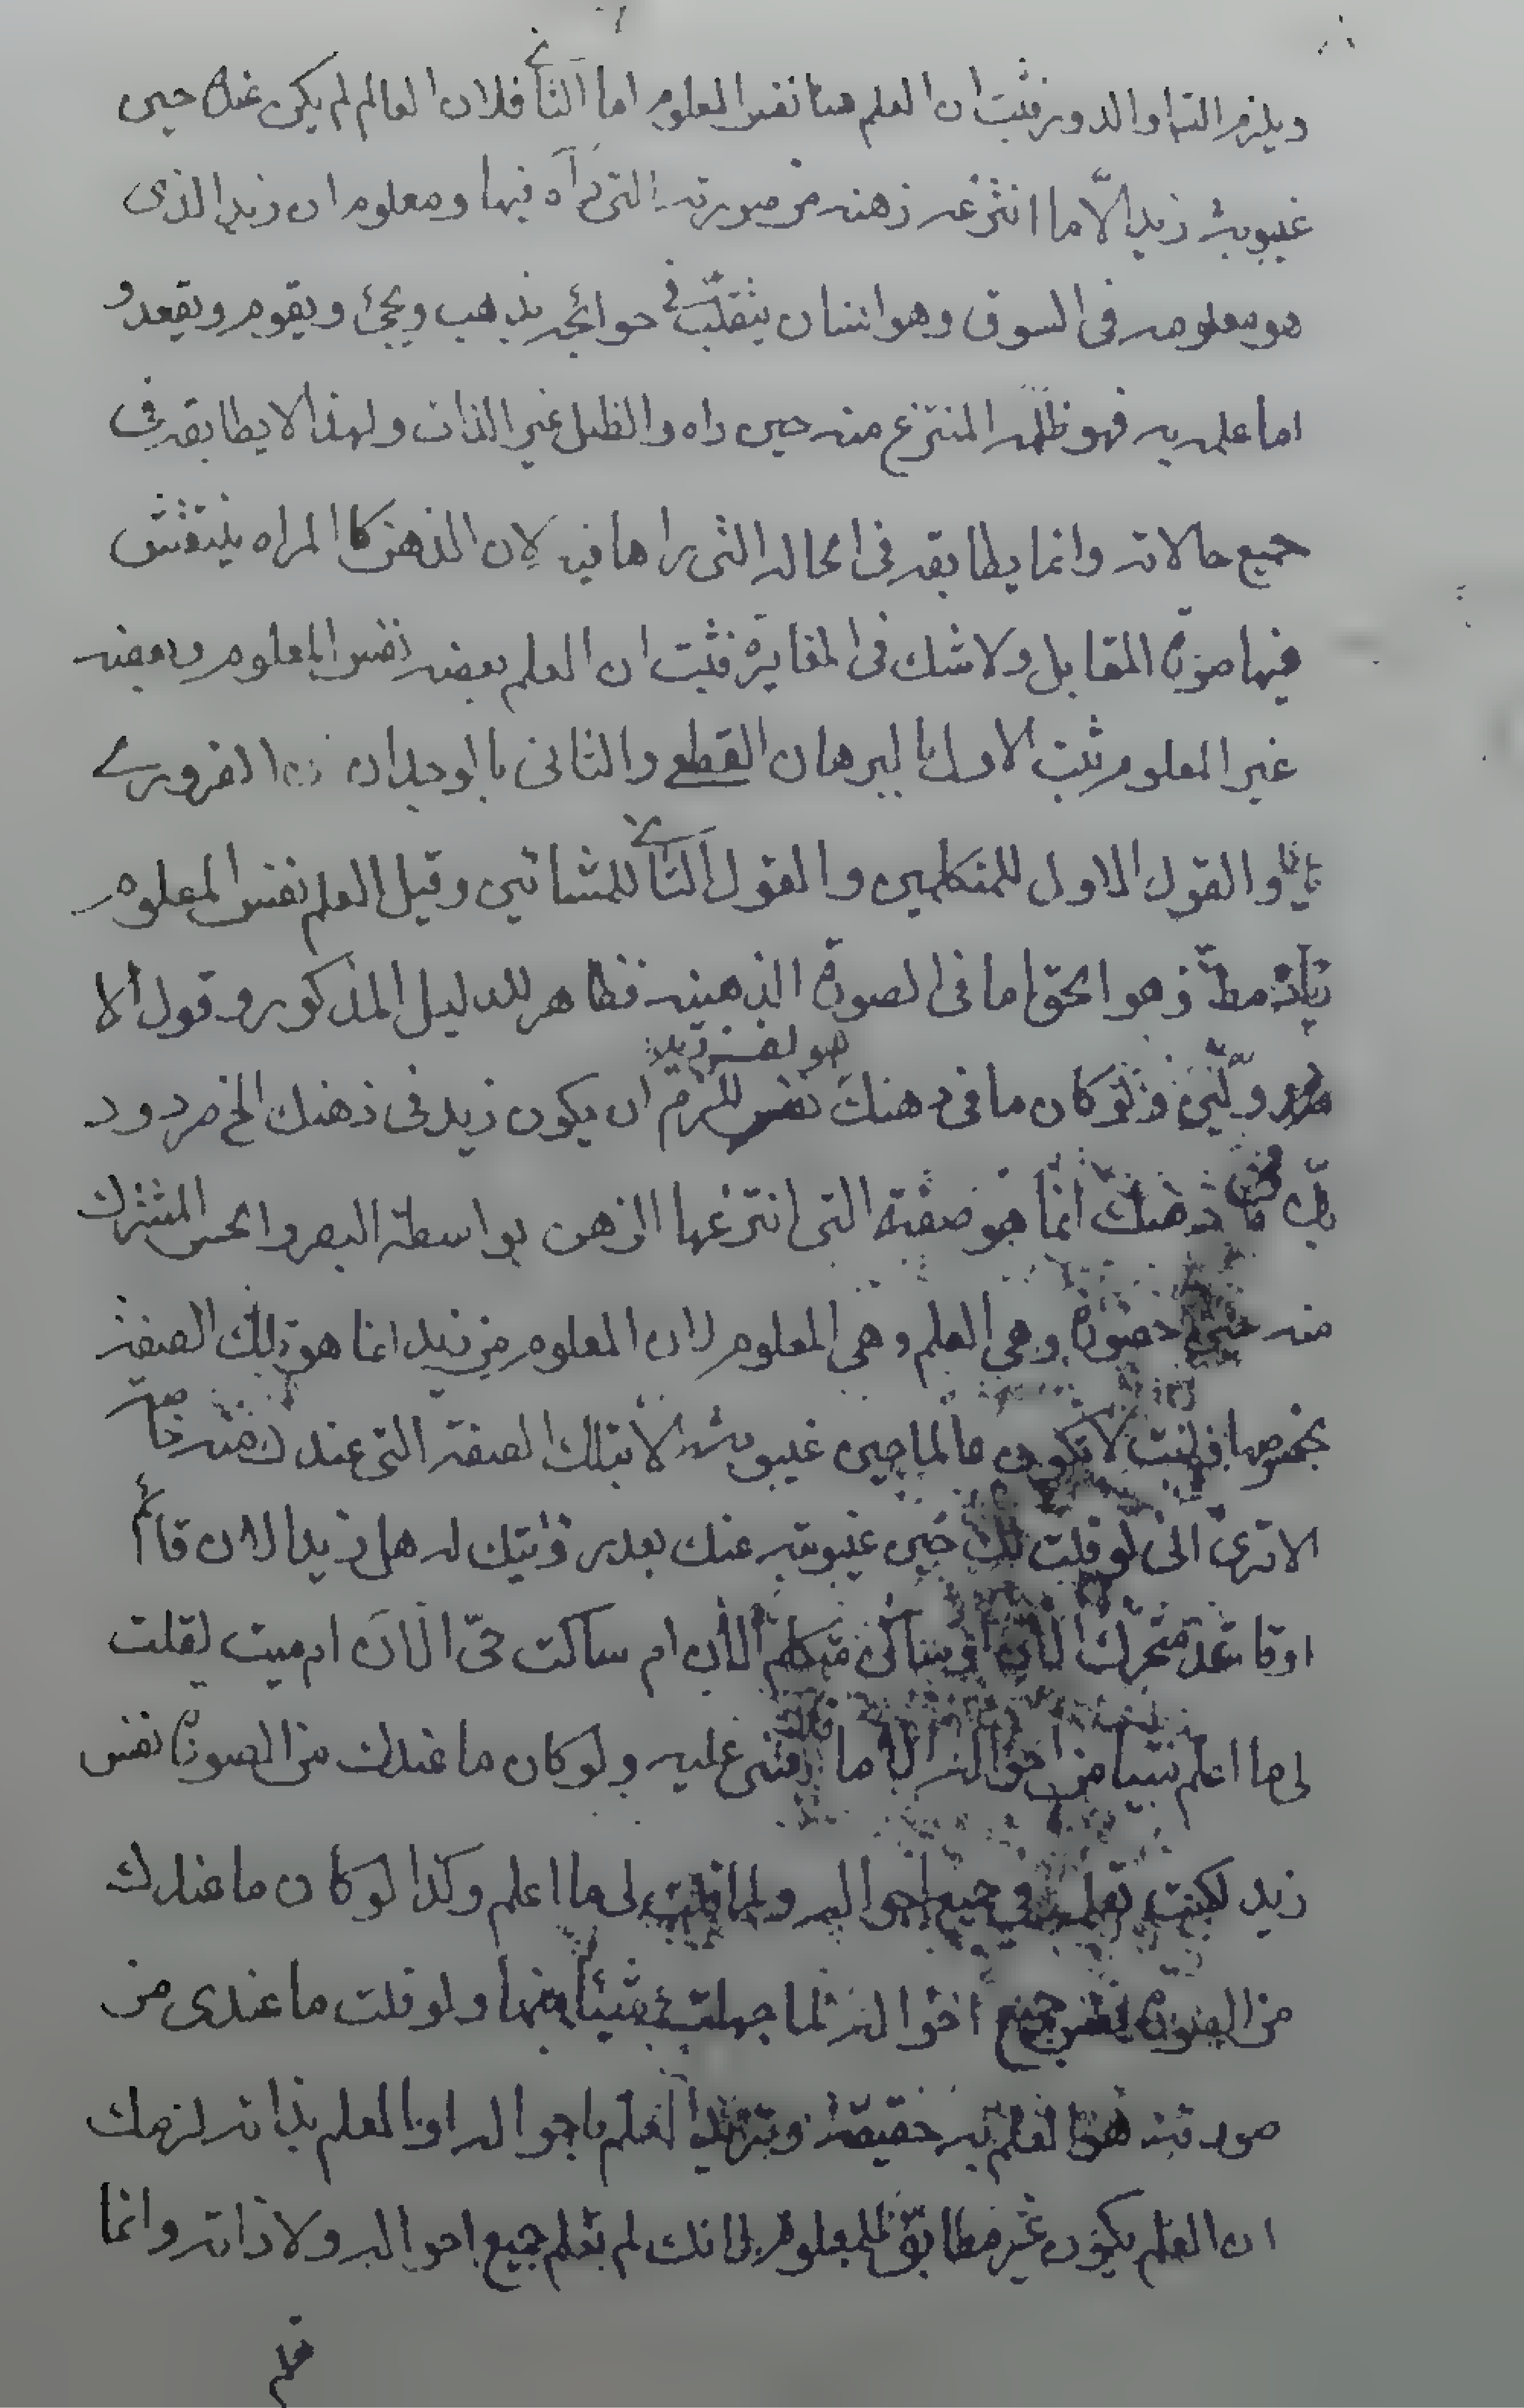 ويلزم التس او الدور فثبت ان العلم هنا نفس المعلوم اما الثانی فلان العالم لم يكن عنده حين
غيبوبة زيد الّا ما انتزعه ذهنه من صورته التی رآه فيها ومعلوم ان زيد الذی
هو معلومه فی السوق وهو انسان يتقلّب فی حوائجه يذهب ويجئ ويقوم ويقعد و
اما علمه به فهو ظله المنتزع منه حين راه والظل غير الذات ولهذا لا يطابقه فی
جميع حالاته وانما يطابقه فی الحاله التی راها فيه لان الذهن كا المراه ينتقش
فيها صورة المقابل ولا شك فی المغايرة فثبت ان العلم بعضه نفس المعلوم وبعضه
غير المعلوم ثبت الاول بالبرهان القطعی والثانی بالوجدان الضروری
والقول الاول للمتكلمين والقول الثانی للمشائين وقيل العلم نفس المعلوم
مط وهو الحق اما فی الصورة الذهنيه فظاهر للدليل المذكور وقول الا
ولين ولو كان ما فی ذهنك هو نفس زيد للزم ان يكون زيد فی ذهنك الخ مردود
بل ما فی ذهنك انما هو صفته التی انتزعها الذهن بواسطة البصر والحس المشترك
منه حين حضوره وهی العلم وهی المعلوم لان المعلوم من زيد انما هو تلك الصفة
بخصوصها فانت لا تكون عالما حين غيبوبته الا بتلك الصفة التی عندك منه خاصة
الا تری انی لو قلت لك حين غيبوبته عنك بعد رؤيتك له هل زيد الان قائم
او قاعد متحرك الان او ساكن متكلم الان ام ساكت حیّ الآن ام ميت لقلت
لی ما اعلم شيئا من احواله الا ما فارقنی عليه ولو كان ما عندك من الصورة نفس
زيد لكنت تعلمه فی جميع احواله ولما قلت لی ما اعلم وكذا لو كان ما عندك
من الصورة نفس جميع احواله لما جهلت شيئا منها ولو قلت ما عندی من
صورته هو العلم به حقيقة وتريد العلم باحواله او العلم بذاته لزمك
ان العلم يكون غير مطابق للمعلوم لانك لم تعلم جميع احواله ولا ذاته وانما